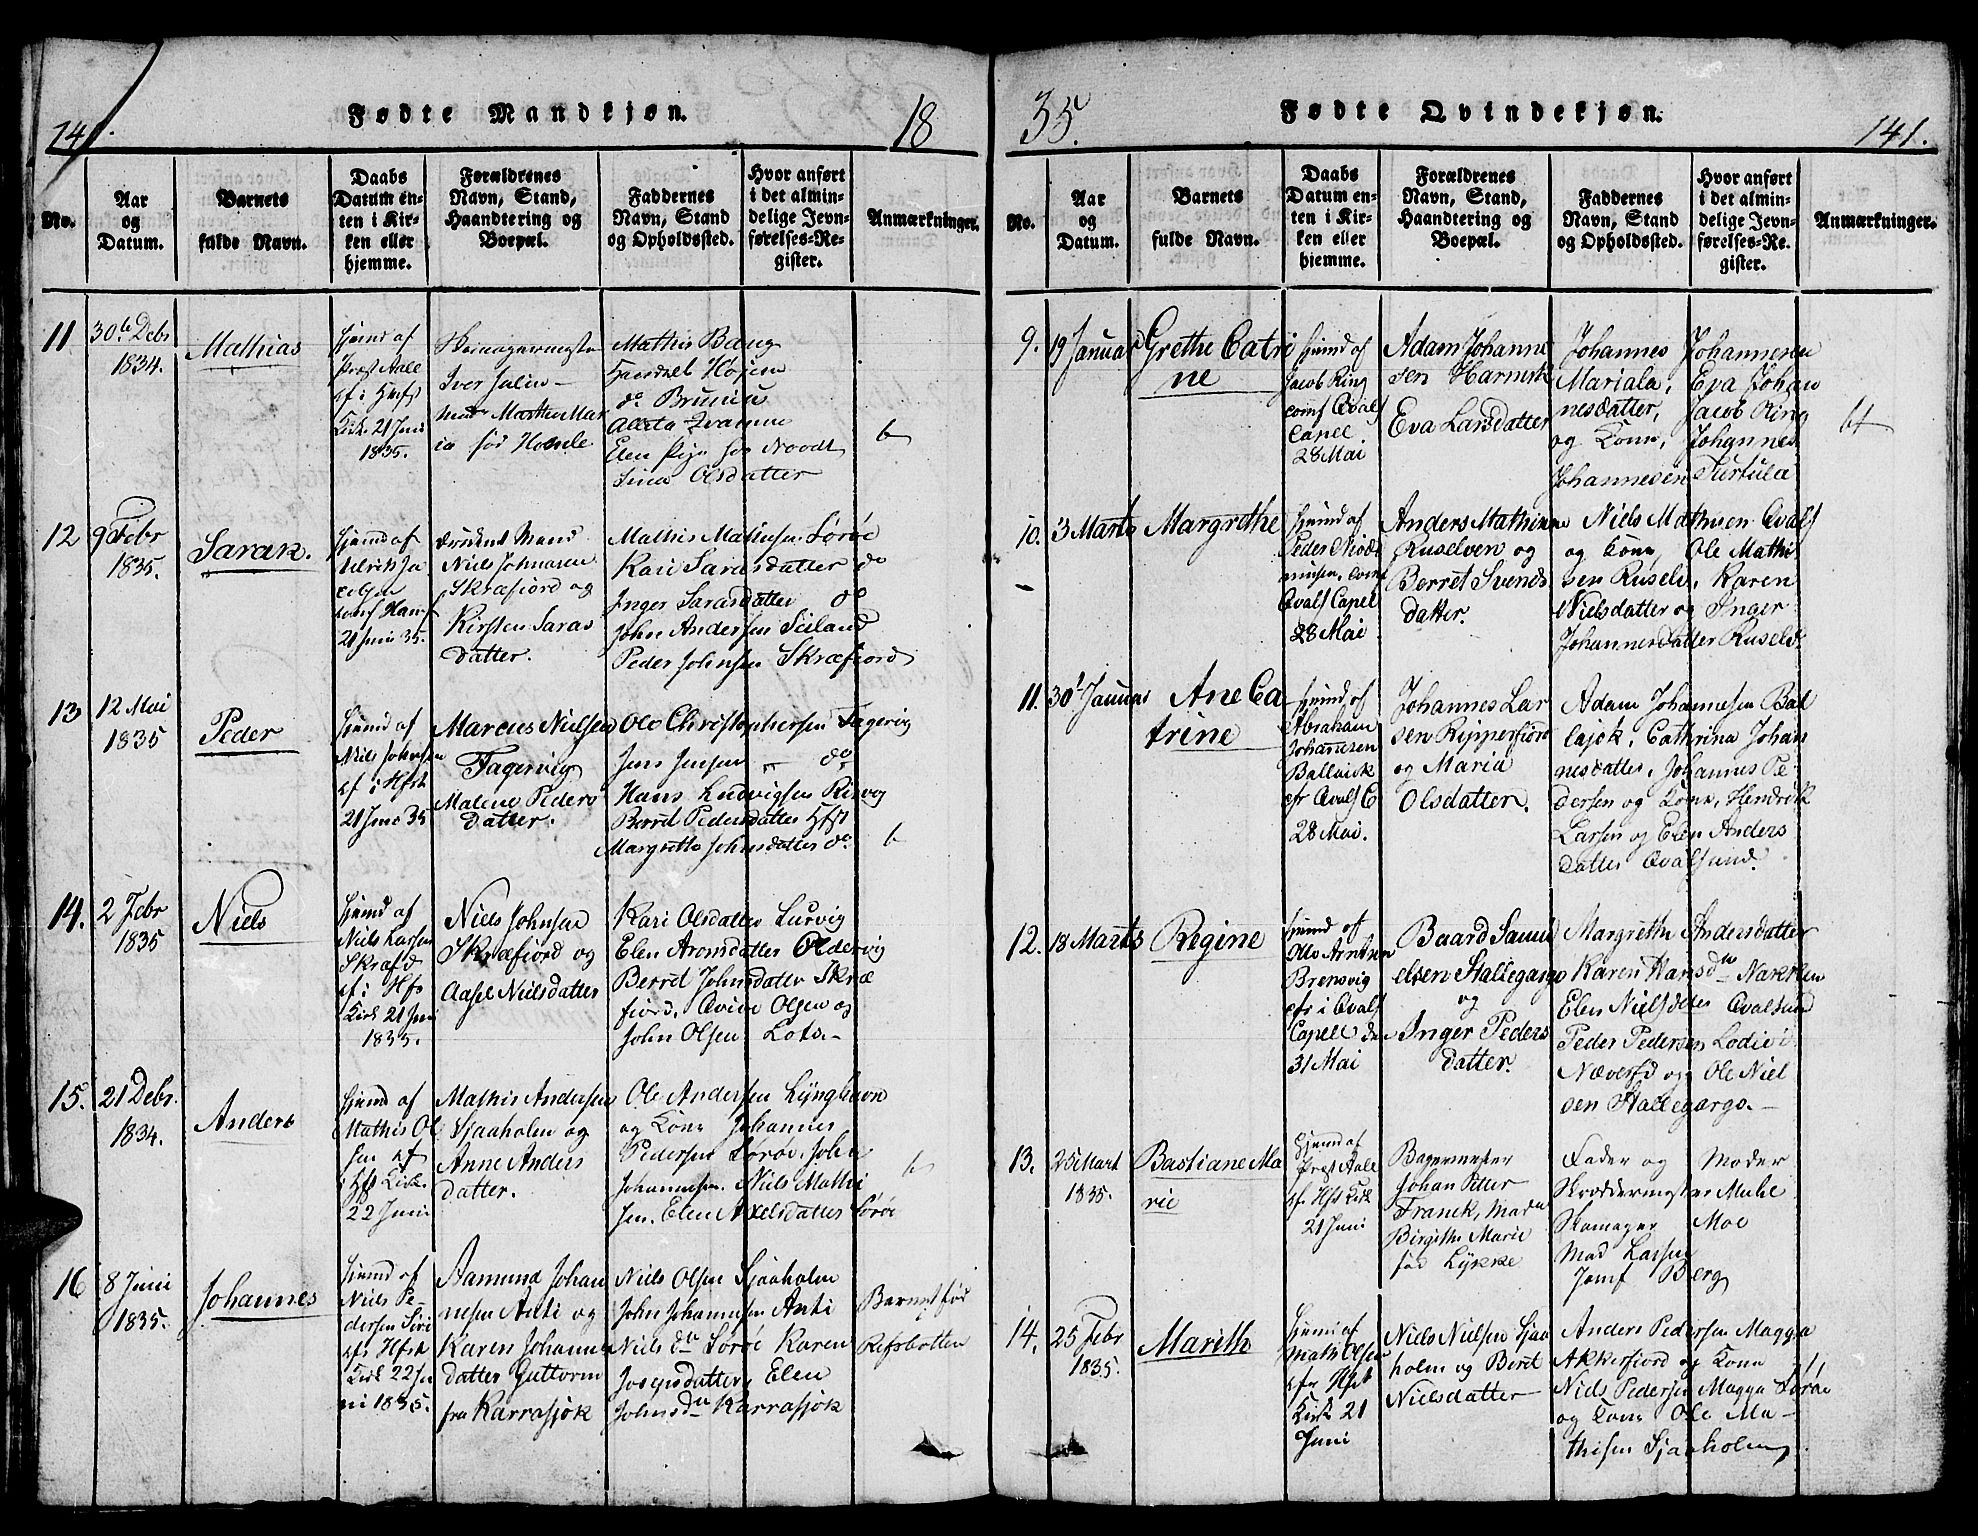 141.
Fødte Mandkjøn.
18
No.
Aar
og
Datum.
Barnets
fulde Navn.
Daabs
Datum en-
ten i Kir-
ken eller
hjemme.
Forældrenes
Navn, Stand,
Haandtering og
Boepæl.
Faddernes
Navn, Stand
og Opholdssted.
Hvor anført
i det almin-
delige Jevn-
førelses-Re-
gister.
Anmærkninger.
11
30te Debr
1834.
Mathias
hjemd af
Præst Aale
cf i Hmfst
Kirk. 21 Juni
1835.
Iver
ia fød
Mathis Bang
Højem
do
Elen Pige hos Noodt
Olsdatter
b
12
9 Febr
1835.
Sarak.
hjemd af
Ulrich Ja
21 Juni 35.
Mand
Niels Johnsen
Skræfjord og
Kirsten Saras
datter.
Mathis Mathisen Sørøe
Kari Sarasdatter do
Inger Sarasdatter do
John Andersen Seiland
Peder Johnsen Skræfjord
13
12 Mai
1835
Peder
hjemd af
Niels Johnsen
cf i Hfst
21 Juni 35
Marcus Nielsen
Fagervig
Malene Peders
datter.
Ole Christophersen Fagervig
Jens Jensen " — do
Hans Ludvigsen
Berret Pedersdatter Hfst
Margrethe Johnsdatter do.
b
14.
2 Febr
1835
Niels
hjemd af
Niels Larsen
Skrafd
cf i Hfs
Kirk 21 Juni
1835.
Niels Johnsen
Skræfjord og
Aasel Nielsdatter
Kari Olsdatter Lurvig
Elen Aronsdatter Oldervig
Berret Johnsdatter Skræ
fjord, Ovive Olsen og
John Olsen Lots.-
15.
21 Debr.
1834.
Anders
hjemd af
Mathis Ol
sen cf
Hfs Kirk.
22 Juni
Mathis Andersen
Sjaaholm og
Anne Anders
datter.
Ole Andersen Lynghavn
og Kone Johannes
Pedersen Sørøe, John
Johannesen, Niels Mathi
sen. Elen Axelsdatter Sørøe
b
16
8 Juni
1835.
Johannes
hjemd af
Niels Pe-
dersen Siri
cf i Hfst
Kirk 22 Ju
ni 1835.
Aamund Johan
nesen Anti og
Karen Johanne
datter Guttorm
fra Karrasjok
Niels Olsen Sjaaholm
John Johannesen Anti
Niels do Sørøe Karen
Josepsdatter, Elen
Johnsdtr Karrasjok
Barnet fød
Refsbotten
35.
Fødte Qvindekjøn.
141.
No.
Aar
og
Datum.
Barnets
fulde Navn.
Daabs
Datum en-
ten i Kir-
ken eller
hjemme.
Forældrenes
Navn, Stand,
Haandtering og
Boepæl.
Faddernes
Navn, Stand
og Opholdssted.
Hvor anført
i det almin-
delige Jevn-
førelses-Re-
gister.
Anmærkninger.
9.
19 Januar
Grethe Catri
ne
hjemd af
Jacob Ring
comf Qvals
Capel
28 Mai
Adam Johanne
sen
Eva Larsdatter
Johannes Johannesen
Mariala, Eva Johan
nesdatter, Jacob Ring
og Kone, Johannes
Johannesen
bt
10.
3 Marts
Margrethe
hjemd af
Peder
Qvals Capel
28 Mai
Anders Mathisen
Ruselven og
Berret Svends
datter.
Niels Mathisen Qvals
og Kone, Ole Mathi
sen Ruselv, Karen
Nielsdatter og Inger
Johannesdatter Ruselv.
11.
30t Januar
Ane Ca
trine
hjemd af
Abraham
Johannesen
Ballnick
cfr Qvals C
28 Mai.
Johannes Lar
sen Ripperfiord
og Maria
Olsdatter.
Adam Johannesen Bal
lajok, Cathrina Johan
nesdatter, Johannes Pe-
dersen og Kone, Hendrik
Larsen og Elen Anders
datter Qvalsund.
12.
18 Marts
Regine
hjemd af
Ole Arntsen
Brensvig
cfr i Qvals
Capell den
31 Mai
Baard Samu
elsen Stallegargo
og
Inger Peders
datter.
Margrethe Andersdatter
Karen Hansdtr Nakken
Elen Nielsdtter Qvalsund
Peder Pedersen Lodie i
Næversd og Ole Niel
sen Stallegargo.-
13.
25 Mart
1835.
Bastiane Ma
rie
hjemd af
Præst Aale
cf. Hfs Kirk
21 Juni
Bagermester
Johan Petter
Franck, Mad
Birgithe Marie
fød Lykke
Fader og Moder
Skreddermester Muhl
Skomager Moe
Mad Larsen
Jomf Berg
14.
25 Febr
1835.
Marith
hjemd af
Math Olsen
cfr Hfst
Kirk 21
Juni
Niels Nielsen Sjaa
holm og Beret
Nielsdatter
Anders Pedersen Magga
Akkerfiord og Kone
Niels Pedersen Magga Sørøe
og Kone Ole Ma-
thisen Sjaaholm